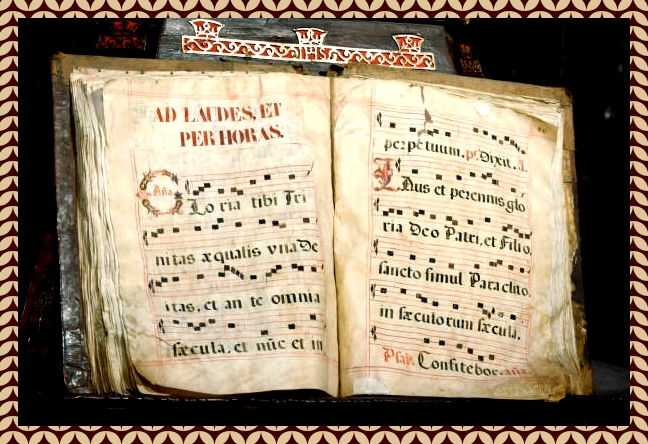 IHS
AD LAUDES, ET
PER HORAS.
Aña.
Glo ria tibi Tri
nitas æqualis vna De
itas, et an te omnia
sæcula, et nūc et in
perpetuum. ps. Dixit. A.
Laus et perennis glo
ria Deo Patri, et Filio,
sancto simul Paraclito,
in sæculorum sæcula.
Psal. Confitebor. aña.